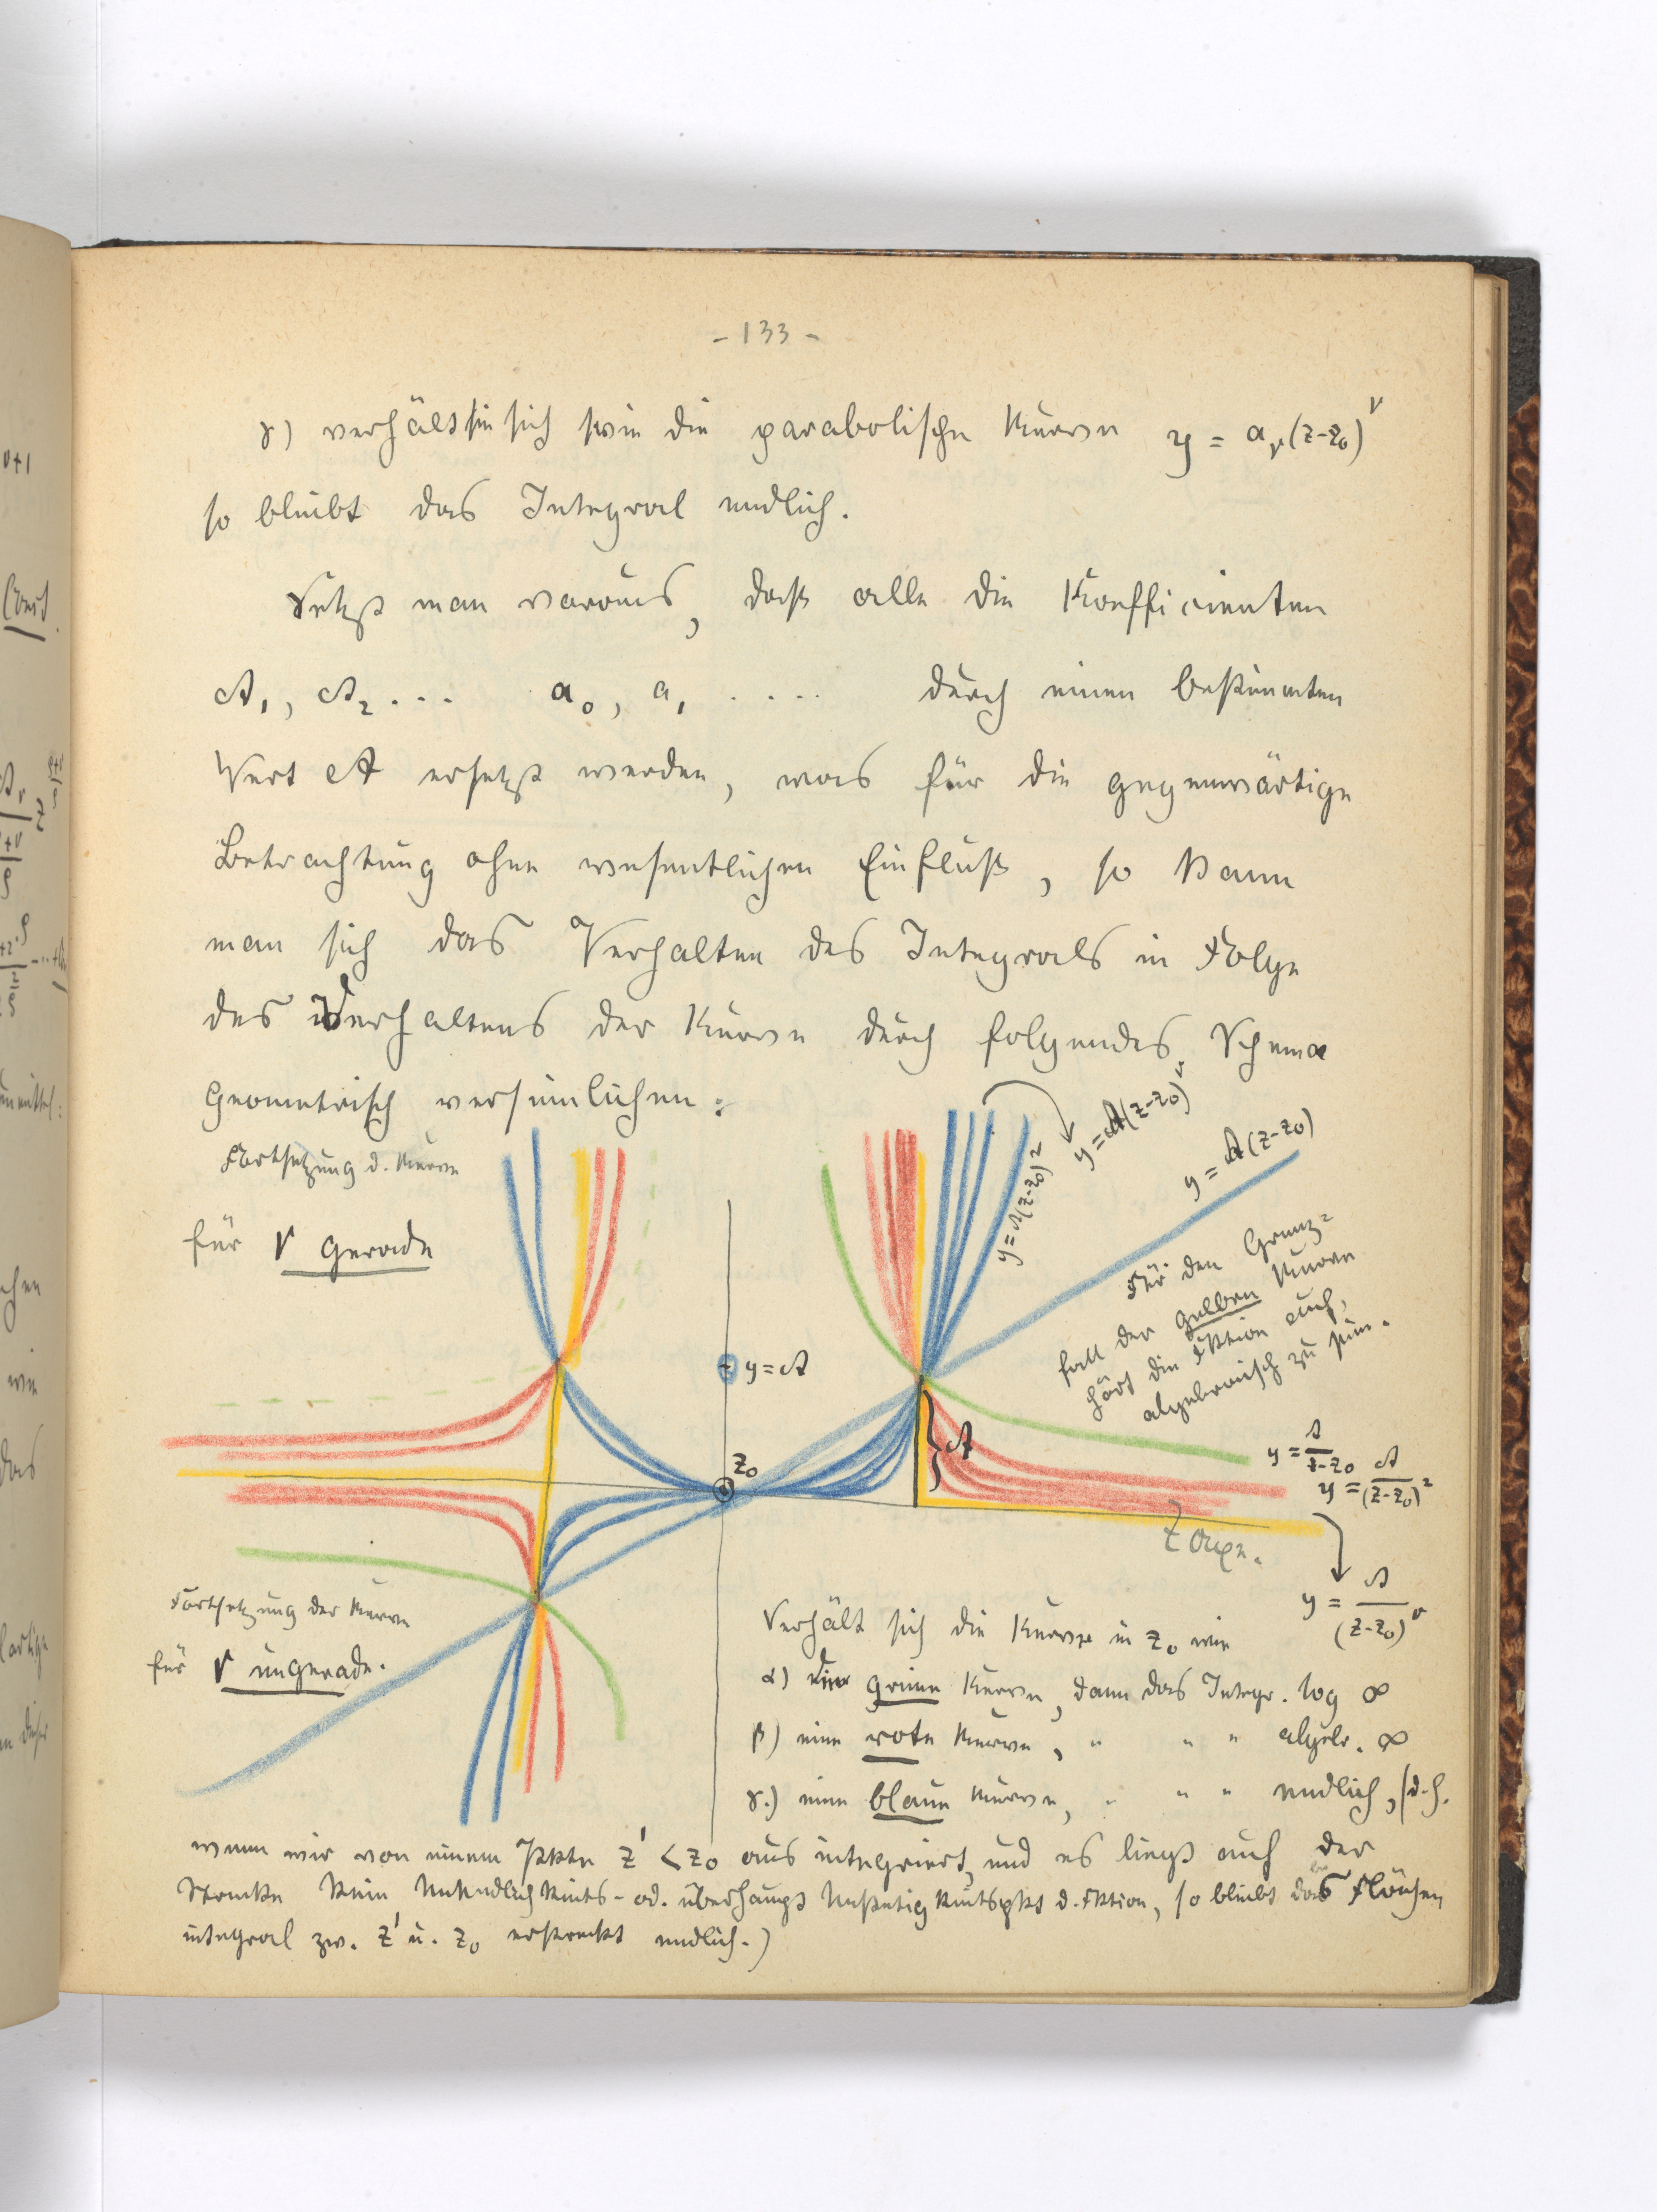 - 133 -
γ) verhält sie sich wie die parabolische Kurve y = a_ν(z-z₀)^ν
so bleibt das Integral endlich.
Setzt man voraus, daß alle die Koefficienten
A₁, A₂ ... a₀, a₁ ..... durch einen bestimmten
Wert A ersetzt werden, was für die gegenwärtige
Betrachtung ohne wesentlichen Einfluß, so kann
man sich das Verhalten des Integrals in Folge
des Verhaltens der Kurve durch folgendes Schema
geometrisch versinnlichen:
Fortsetzung d. Kurve
für ν gerade
y = A(z-z₀)²
y = A(z-z₀)^ν
y = A(z-z₀)
Für den Grenz=
fall der gelben Kurve
hört die Fktion auf,
algebraisch zu sein.
y = A
z₀
A
y = A/(z-z₀)
y = A/(z-z₀)²
z Axe.
y = A/(z-z₀)^ν
Fortsetzung der Kurve
für ν ungerade.
Verhält sich die Kurve in z₀ wie
α) eine grüne Kurve, dann das Integr. log ∞
β) eine rote Kurve, " " " algebr. ∞
γ.) eine blaue Kurve, " " " endlich, (d.h.
wenn wir von einem Pkte z' < z₀ aus integriert, und es liegt auf der
Strecke kein Unendlichkeits- od. überhaupt Unstetigkeitspkt d. Fktion, so bleibt das Flächen
integral zw. z' u. z₀ erstreckt endlich.)